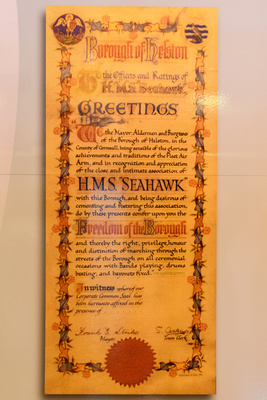 Borough of Helston
To the Officers and Ratings of
H.M.S. "SEAHAWK"
GREETINGS
We the Mayor, Aldermen and Burgesses
of the Borough of Helston, in the
County of Cornwall, being sensible of the glorious
achievements and traditions of the Fleet Air
Arm, and in recognition and appreciation
of the close and intimate association of
H.M.S. "SEAHAWK"
with this Borough, and being desirous of
cementing and fostering this association,
do by these presents confer upon you the
Freedom of the Borough
and thereby the right, privilege, honour
and distinction of marching through the
streets of the Borough on all ceremonial
occasions with bands playing, drums
beating, and bayonets fixed.
In witness whereof our
Corporate Common Seal has
been hereunto affixed in the
presence of
Mayor
Town Clerk